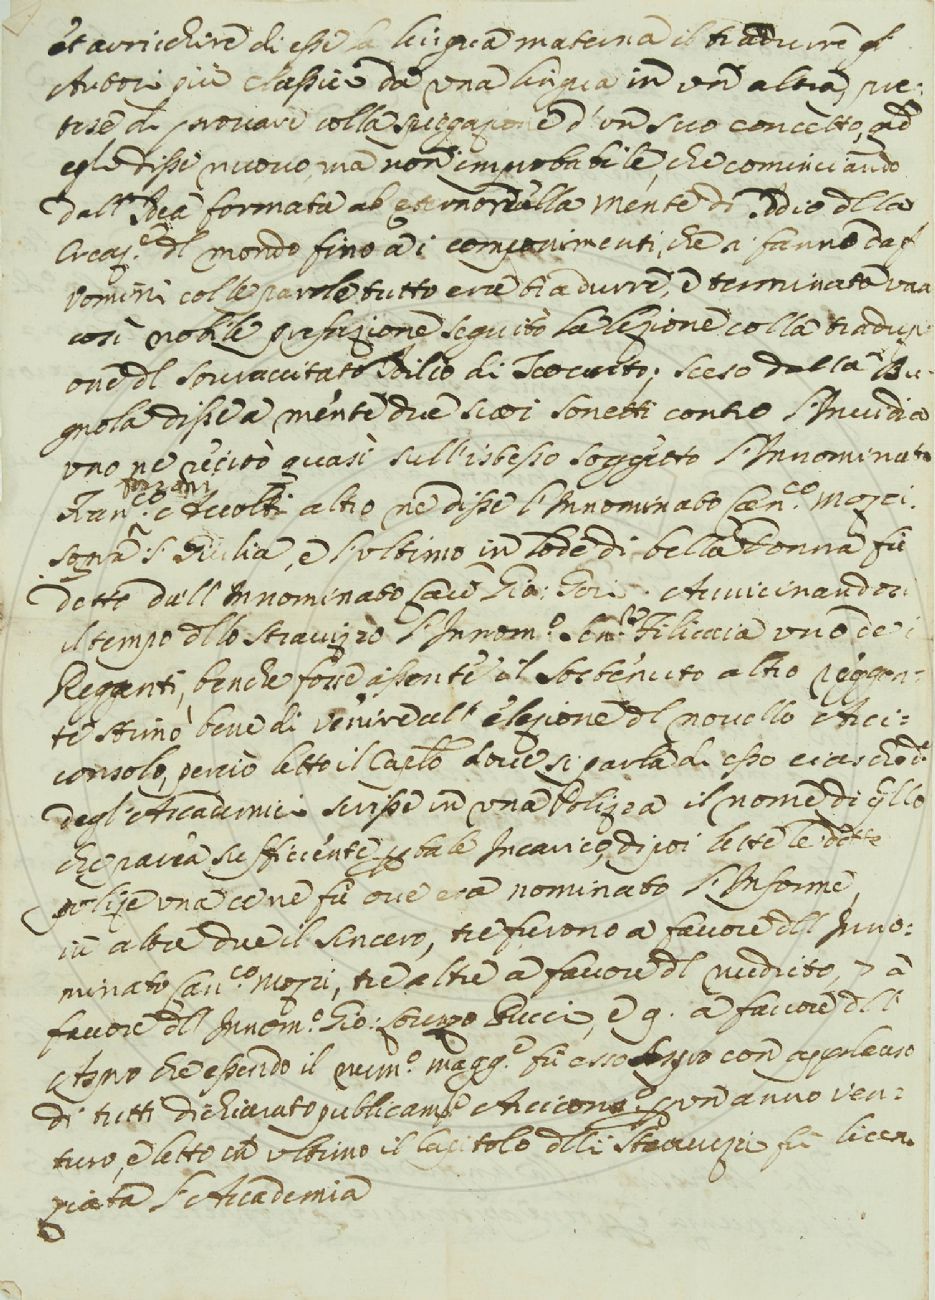 et arricchire di essi la lingua materna il tradurre gl'
Autori più classici da una lingua in un altra, pre-
tese di provare colla spiegazione d'un suo concetto, qd
egli disse nuovo, ma non improbabile, che cominciando
dall'Idea formata ab eterno nella Mente di Iddio della
Creaz.e dl mondo fino a i componimenti, che si fanno dagl'
vomini colle parole tutto era tradurre, e terminata una
così nobile prefazione seguitò la lezione colla traduzi-
one dl sovraccitato Idilio di Teocrito; sceso dalla Bu-
gnola disse a mente due suoi sonetti contro l'Invidia
uno ne recitò quasi sull'istesso soggetto l'Innominato
Fran.co Forzoni Accolti altro ne disse l'Innominato Can.co Mozzi
sopra S. Giulia, e l'ultimo in lode di bella Donna fù
detto dall'Innominato Gio: Avvicinandosi
il tempo dllo Stravizzo l'Innom.o Sen.re Filicaia uno de i
Reggenti, benche fosse assente il sostenuto altro Reggen-
te stimò bene di venire all'elezione dl novello Arci-
consolo, perciò letto il Capitolo dove si parla di esso ciascheduno
degl'Accademici scrisse in una Polizza il nome di qllo
che parea sufficiente p tale Incarico, di poi lette le dette
polize una ce ne fù ove era nominato l'Informe,
in altre due il sincero, tre furono a favore dell Inno-
minato Can.co Mozzi, tre altre a favore dl 7 a
favore dll'Innom.o Gio: Lorenzo Pucci, e 9. a favore dll'
che essendo il num.o magg.e fù con applauso
di tutti dichiarato publicam.te Arcicons.o p un anno ven-
turo, e letto in ultimo il Capitolo dlli Stravizzi fù licen-
ziata l'Accademia